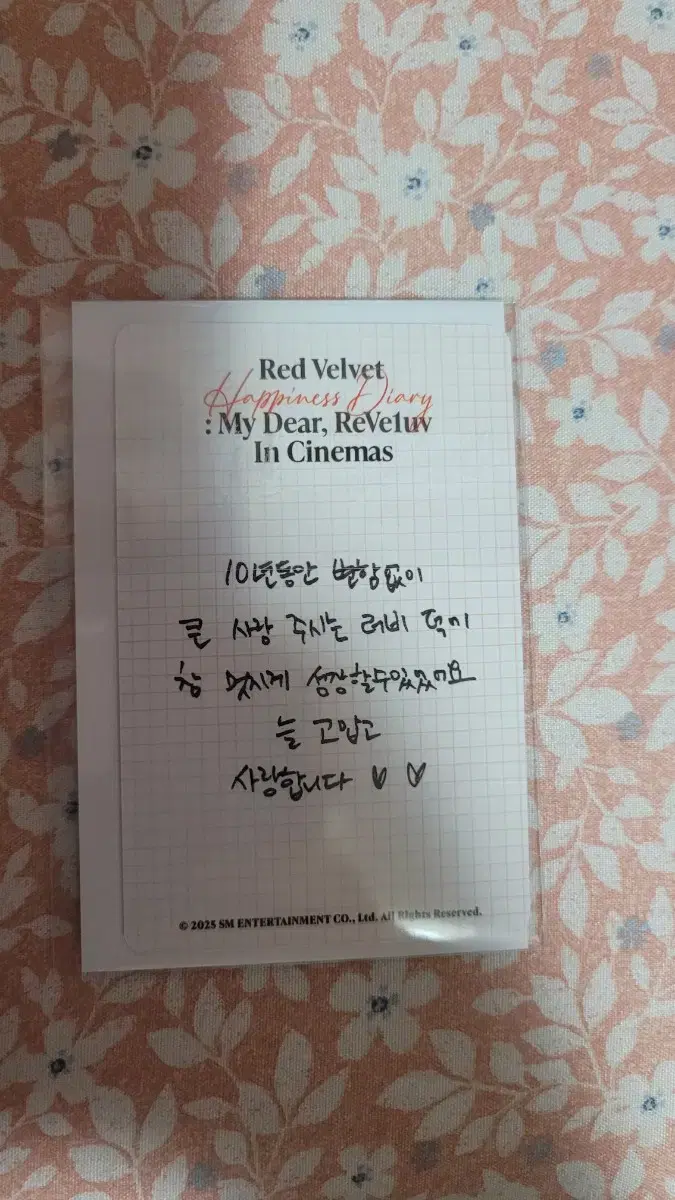 Red Velvet
Happiness Diary
: My Dear, ReVe1uv
In Cinemas
10년동안 변함없이
큰 사랑 주시는 러비 덕에
참 멋지게 성장할수있었어요
늘 고맙고
사랑합니다 ♡ ♡
© 2025 SM ENTERTAINMENT CO., Ltd. All Rights Reserved.